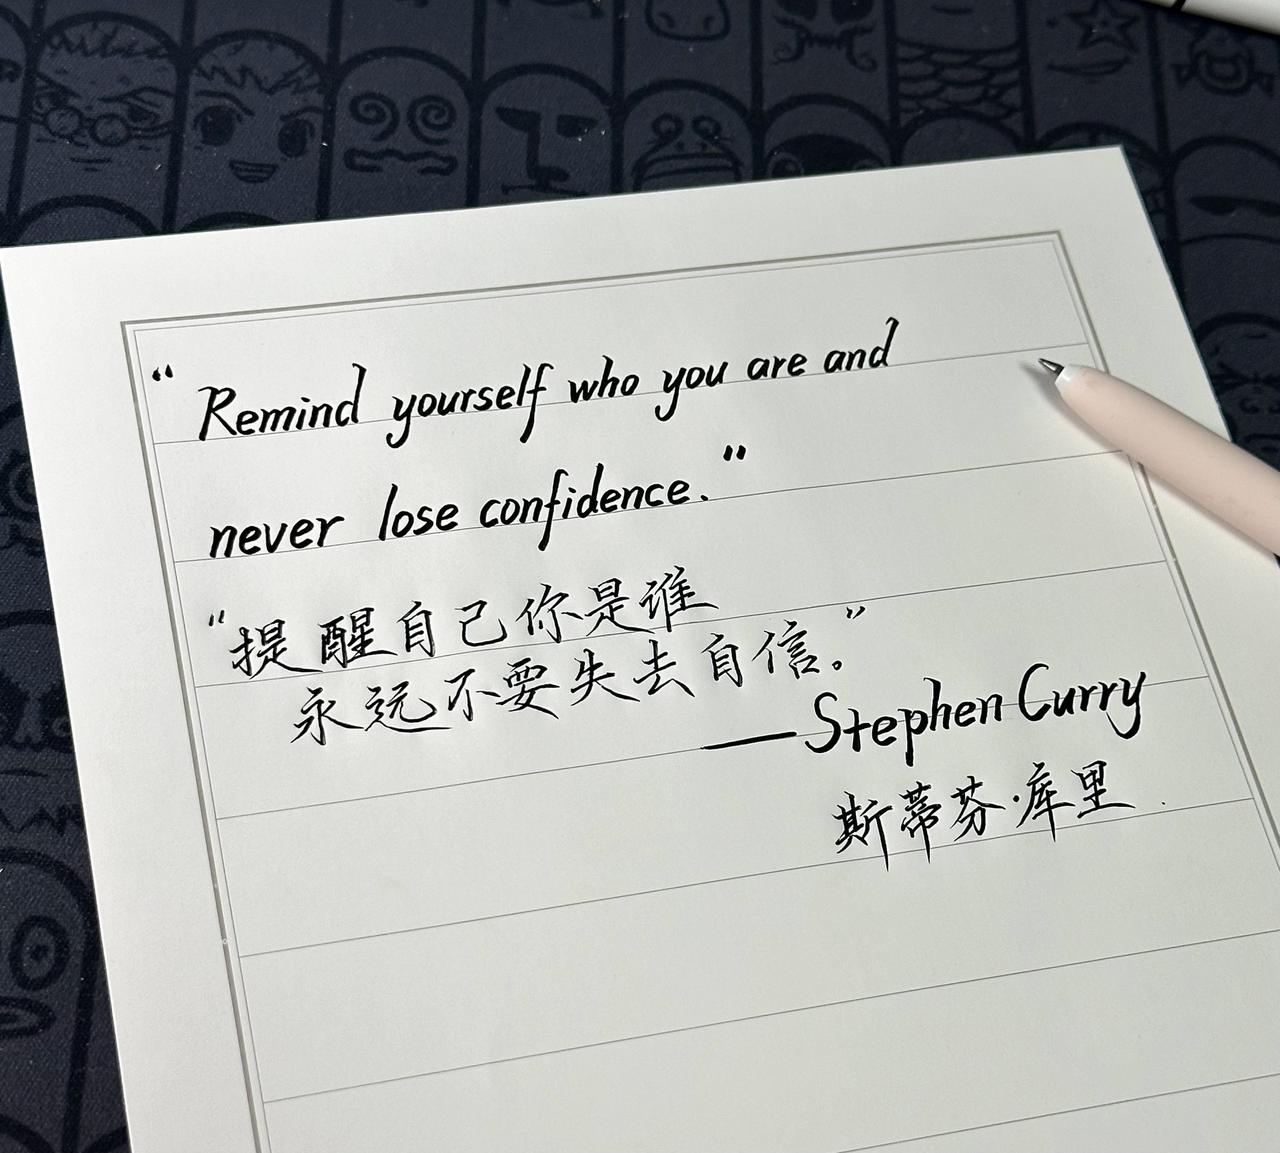 “Remind yourself who you are and
never lose confidence.”
“提醒自己你是谁
永远不要失去自信。”
——Stephen Curry
斯蒂芬·库里